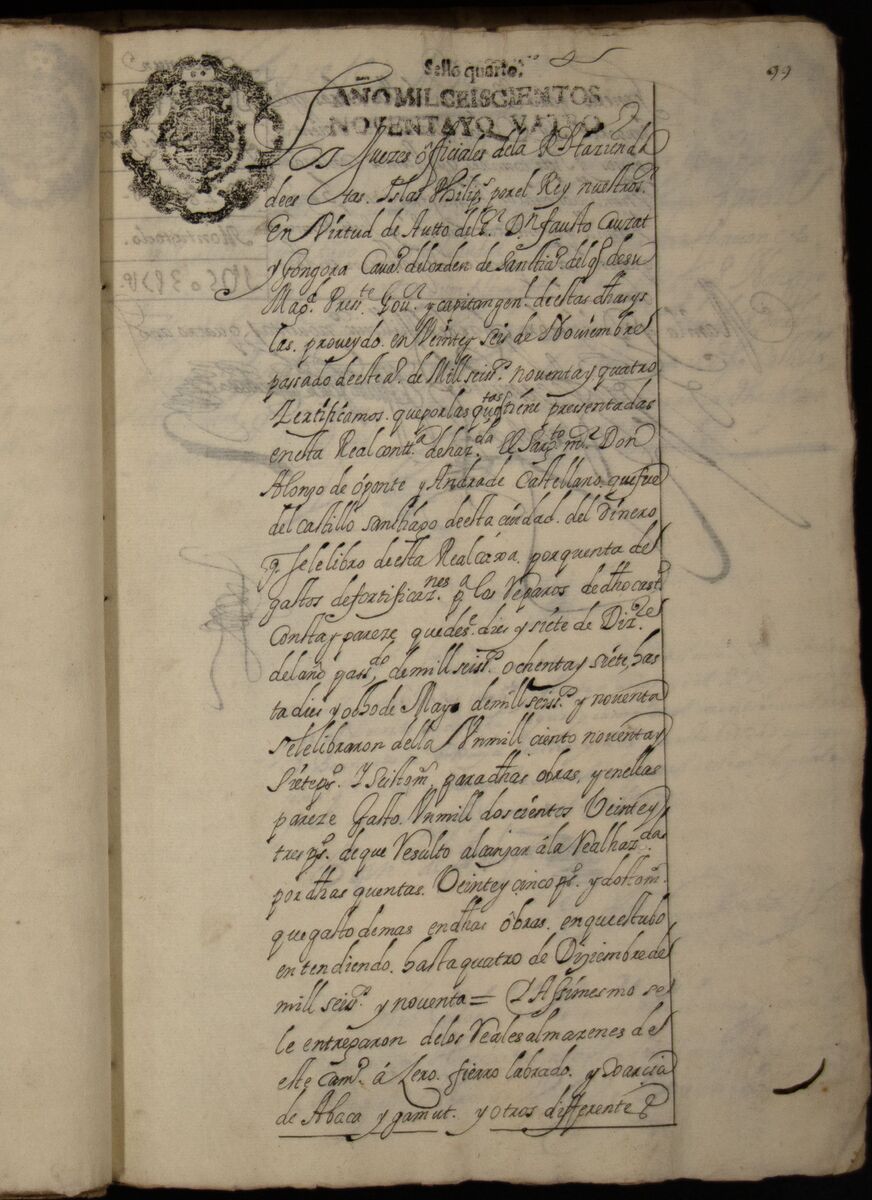 Sello quarto.
99
AÑO MIL CEISCIENTOS
NOVENTA YO VATRO
Juezes officiales dela Rl Hazienda
de estas Islas Philips. por el Rey nuestro sr.
En Virtud de Autto del sr. Dn fausto Cruzat
y Gongora Cavo. del orden de Sanctiago. del qo. de su
Magd. Preste. Govr. y capitan genl. de estas dhas ys
las. proveydo. en Veinte y seis de Noviembre
passado de este ao. de Mill seiso. noventa y quatro
Zertificamos. que por las quentas tiene presentadas
en esta Real conta. de hazda. El Sargto mr. Don
Alonzo de aponte y Andrade Castellano, que fue
del castillo santhiago de esta ciudad. del Dinero
q se le libro de esta Real caxa. por quenta de
gastos de fortificaznes. pa los Reparos de dho casto.
Consta y pareze que desde. dies y siete de Dizre
del año passdo, de mill seiso. ochenta y siete, has
ta dies y ocho de Mayo de mill seiso. y noventa
se le libraron della Vn mill ciento noventa y
siete ps. Y seis toms. para dhas obras, y en ellas
pareze Gasto. Vn mill doscientos Veinte y
tres ps. de que Resulto alcanzar á la Real hazda.
por dhas quentas. Veinte y cinco ps. y dos toms.
que gasto de mas en dhas obras. en que estubo
entendiendo. hasta quatro de Diziembre de
mill seiso. y noventa = Y Assimesmo se
le entregaron de los Reales almazenes de
este Campo. á Zero. fierro labrado. y xarcia
de Abaca y gamut. y otros differente